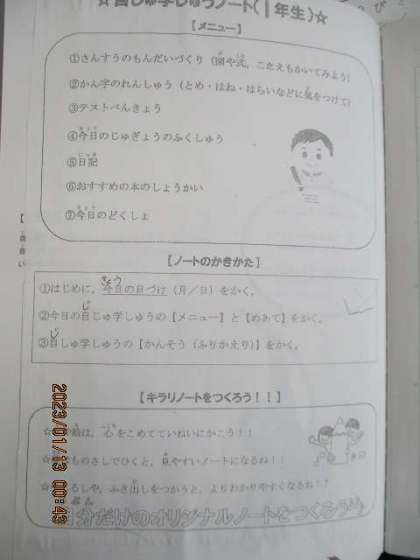 ☆自しゅ学しゅうノート(1年生)☆
【メニュー】
①さんすうのもんだいづくり(図や式、こたえもかいてみよう)
②かん字のれんしゅう(とめ・はね・はらいなどに気をつけて)
③テストべんきょう
④今日のじゅぎょうのふくしゅう
⑤日記
⑥おすすめの本のしょうかい
⑦今日のどくしょ
【ノートのかきかた】
①はじめに、今日の日づけ(月/日)をかく。
②今日の自じゅ学しゅうの【メニュー】と【めあて】をかく。
③自しゅ学しゅうの【かんそう(ふりかえり)】をかく。
【キラリノートをつくろう!!】
☆ 絵は、心をこめてていねいにかこう!!
☆ ものさしでひくと、見やすいノートになるね!!
☆ るしや、ふき出しをつかうと、よりわかりやすくなるね!?
自分だけのオリジナルノートをつくろう
2023/01/13 00:43